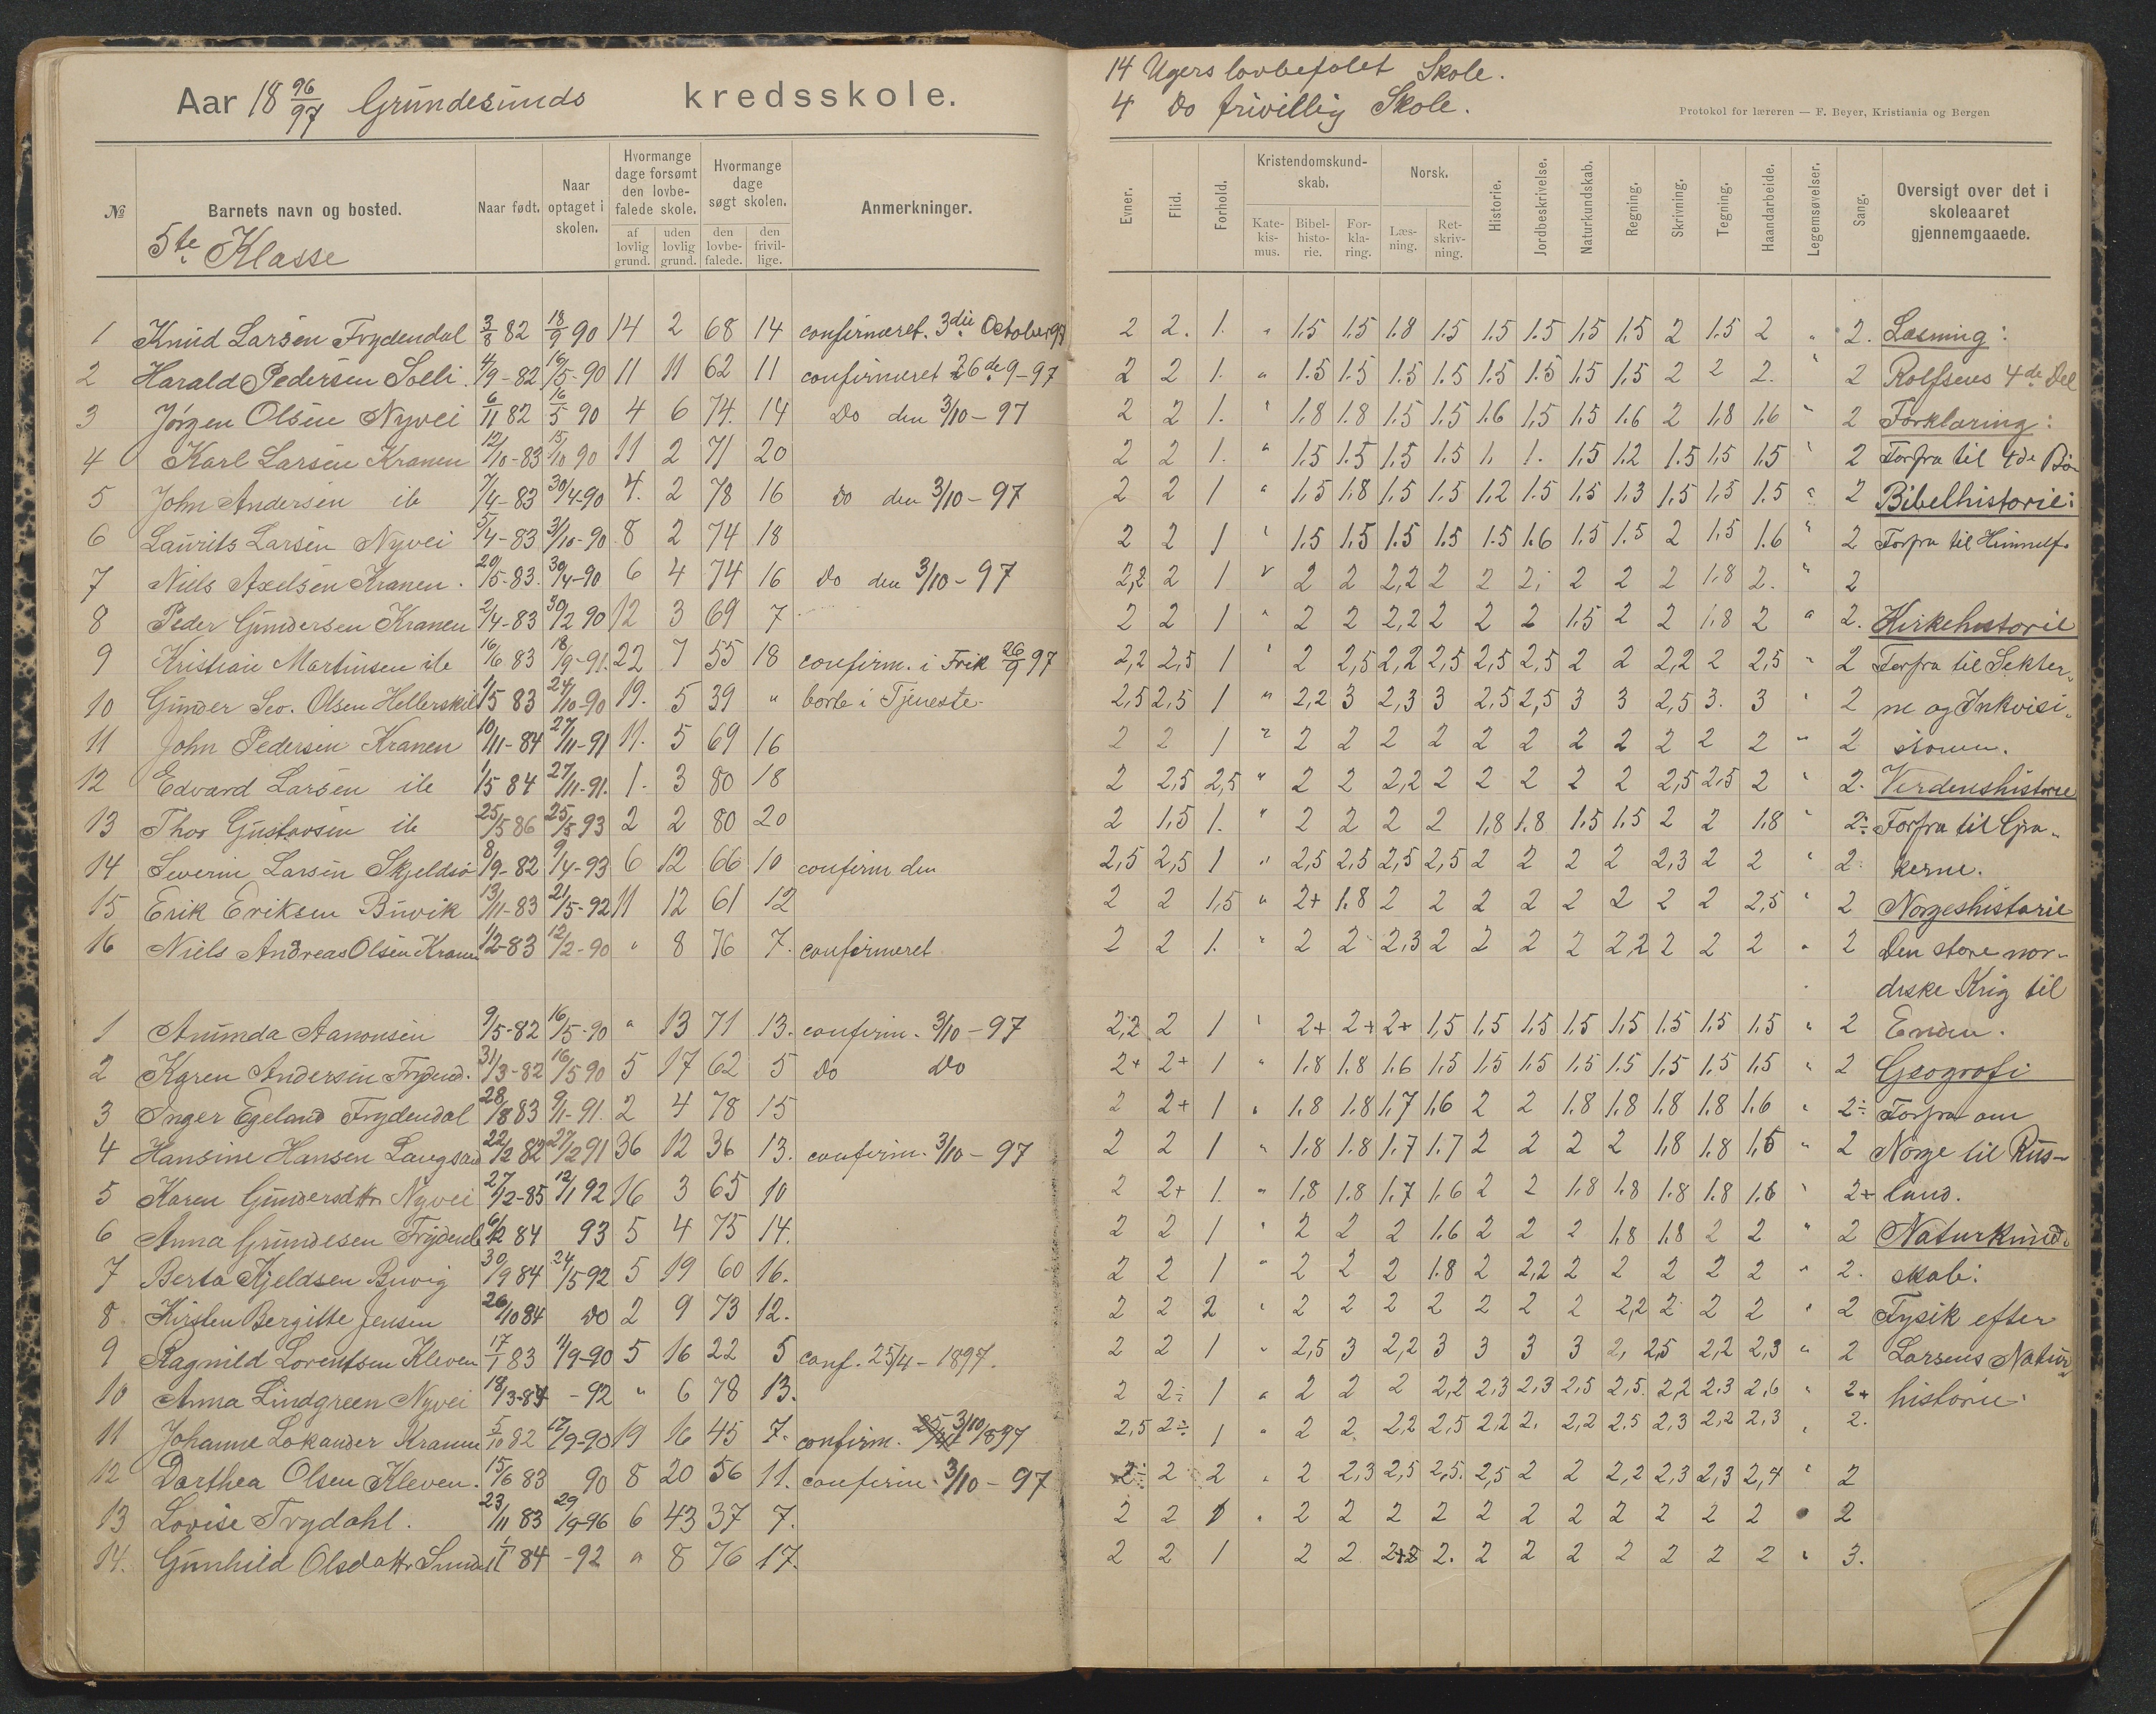 Aar 18 96/97 Grundesunds kredsskole.
№ Barnets navn og bosted. Naar født. Naar optaget i skolen. Hvormange dage forsømt den lovbefalede skole. af lovlig grund. uden lovlig grund. Hvormange dage søgt skolen. den lovbefalede. den frivillige. Anmerkninger.
5te Klasse
1 Knud Larsen Frydendal 3/8 82 18/9 90 14 2 68 14 confirmeret. 3die October 97
2 Harald Pedersen Solli 4/9-82 16/5-90 11 11 62 11 confirmeret 26de 9-97
3 Jørgen Olsen Nyvei 6/11 82 16/5 90 4 6 74. 14 Do den 3/10-97
4 Karl Larsen Kranen 12/10-83 15/10 90 11 2 71 20
5 John Andersen ib 7/4-83 30/4-90 4. 2 78 16 Do den 3/10-97
6 Laurits Larsen Nyvei 5/4-83 3/10-90 8 2 74 18
7 Niels Axelsen Kranen. 20/5-83. 30/4-90 6 4 74 16 Do den 3/10-97
8 Peder Gundersen Kranen 2/4-83 30/2 90 12 3 69 7
9 Kristian Martinsen ib 16/6 83 18/9-91. 22 7 55 18 confirm. i Frik 26/9 97
10 Gunder Sev. Olsen Hellerskil 1/5 83 24/10-90 19. 5 39 " borte i Tjeneste.
11 John Pedersen Kranen 10/11-84 27/11-91 11. 5 69 16
12 Edvard Larsen ib 1/5 84 27/11-91. 1. 3 80 18
13 Thor Gustavsen ib 25/5 86 25/5 93 2 2 80 20
14 Severin Larsen Skjeldsø 8/9-82 9/4-93 6 12 66 10 confirm den
15 Erik Eriksen Buvik 13/11-83 21/5-92 11 12 61 12
16 Niels Andreas Olsen Kranen 1/2-83 12/2-90 " 8 76 7. confirmeret
1 Anumda Aanonsen 9/5-82 16/5-90 " 13 71 13. confirm. 3/10-97
2 Karen Andersen Frydend. 31/3-82 16/5 90 5 17 62 5 Do Do
3 Inger Egeland Frydendal 28/8 83 9/1-91. 2 4 78 15
4 Hansine Hansen Langsæ 22/2 82 27/2 91 36 12 36 13. confirm. 3/10-97
5 Karen Gundersdttr Nyvei 27/12-85 12/1 92 16 3 65 10
6 Anna Grundesen Frydend 6/12 84 93 5 4 75 14.
7 Berta Kjeldsen Buvig 30/9 84 24/5 92 5 19 60 16.
8 Kirsten Bergitte Jensen 26/10 84 Do 2 9 73 12.
9 Ragnild Lorentsen Kleven 17/1 83 11/9-90 5 16 22 5 conf. 25/4-1897.
10 Anna Lindgreen Nyvei 18/3-84 -92 " 6 78 13.
11 Johanne Lokander Kranen 5/10 82 12/9-90 19 16 45 7. confirm. 3/10 1897
12 Dorthea Olsen Kleven. 15/6 83 90 8 20 56 11. confirm. 3/10-97
13 Lovise Frydahl. 23/11 83 29/9-96 6 43 37 7.
14. Gunhild Olsdattr 1/11 84 -92 " 8 76 17.
14 Ugers lovbefalet Skole.
4 Do frivillig Skole.
Protokol for læreren — F. Beyer, Kristiania og Bergen
Evner. Flid. Forhold. Kristendomskundskab. Katekismus. Bibelhistorie. Forklaring. Norsk. Læsning. Retskrivning. Historie. Jordbeskrivelse. Naturkundskab. Regning. Skrivning. Tegning. Haandarbeide. Legemsøvelser. Sang. Oversigt over det i skoleaaret gjennemgaaede.
2 2. 1. " 1.5 1.5 1.8 1.5 1.5 1.5 1.5 1.5 2 1.5 2 " 2. Læsning:
2 2 1. " 1.5 1.5 1.5 1.5 1.5 1.5 1.5 1.5 2 2 2. " 2 Rolfsens 4de Del
2 2 1. " 1.8 1.8 1.5 1.5 1.6 1.5 1.5 1.6 2 1.8 1.6 " 2 Forklaring:
2 2 1. " 1.5 1.5 1.5 1.5 1. 1. 1.5 1.2 1.5 1.5 1.5 " 2 Forfra til 4de Bøn
2 2 1 " 1.5 1.8 1.5 1.5 1.2 1.5 1.5 1.3 1.5 1.5 1.5 " 2 Bibelhistorie:
2 2 1 " 1.5 1.5 1.5 1.5 1.5 1.6 1.5 1.5 2 1.5 1.6 " 2 Forfra til Himmelf.
2,2 2 1 " 2 2 2,2 2 2 2. 2 2 2 1.8 2. " 2
2 2 1 " 2 2 2,2 2 2 2 1.5 2 2 1.8 2 " 2. Kirkehistorie
2,2 2,5 1 " 2 2,5 2,2 2,5 2,5 2,5 2 2 2,2 2 2,5 " 2 Forfra til Sekter-
2,5 2,5 1 " 2,2 3 2,3 3 2,5 2,5 3 3 2,5 3. 3 " 2 ne og Inkvisi-
2 2 1 " 2 2 2 2 2 2 2 2 2 2 2 " 2 tionen.
2 2,5 2,5 " 2 2 2,2 2 2 2 2 2 2,5 2,5 2 " 2. Verdenshistorie
2 1,5 1. " 2 2 2 2 1,8 1.8 1.5 1.5 2 2 1.8 " 2÷ Forfra til Græ-
2,5 2,5 1 " 2,5 2,5 2,5 2,5 2 2 2 2 2,3 2 2 " 2. kerne.
2 2 1,5 " 2+ 1.8 2 2 2 2 2 2 2 2 2,5 " 2 Norgeshistorie
2 2 1. " 2 2 2,3 2 2 2 2 2,2 2 2 2 " 2 Den store nor-
diske Krig til
2,2 2 1 " 2+ 2+ 2+ 1,5 1,5 1.5 1.5 1,5 1.5 1.5 1.5 " 2 Enden.
2+ 2+ 1 " 1.8 1.8 1.6 1.5 1.5 1.5 1.5 1.5 1.5 1.5 1.5 " 2 Geografi
2 2+ 1 " 1.8 1.8 1.7 1.6 2 2 1.8 1.8 1.8 1.8 1.6 " 2÷ Forfra om
2 2 1 " 1.8 1.8 1.7 1.7 2 2 2 2 1.8 1.8 1.5 " 2 Norge til Rus-
2 2+ 1. " 1.8 1.8 1.7 1.6 2 2 1.8 1.8 1.8 1.8 1.6 " 2+ land.
2 2 1 " 2 2 2 1.6 2 2 2 1.8 1.8 2 2 " 2 Naturkund-
2 2 1 " 2 2 2 1.8 2 2,2 2 2 2 2 2 " 2. skab:
2 2 2 " 2 2 2 2 2 2 2 2,2 2 2 2 " 2 Fysik efter
2 2 1 " 2,5 3 2,2 3 3 3 3 2, 2,5 2,2 2,3 " 2 Larsens Natur
2 2÷ 1 " 2 2 2 2,2 2,3 2,3 2,5 2,5. 2,2 2.3 2,6 " 2+ historie.
2,5 2÷ 1 " 2 2 2,2 2,5 2,2 2. 2,2 2,5 2,3 2,2 2,3 " 2.
2÷ 2 2 " 2 2,3 2,5 2,5. 2,5 2 2 2,2 2,3 2,3 2,4 " 2
2 2 1 " 2 2 2 2 2 2 2 2 2 2 2 " 2
2 2 1 2 2 2. 2 2 2 2 2 2 2 " 3.